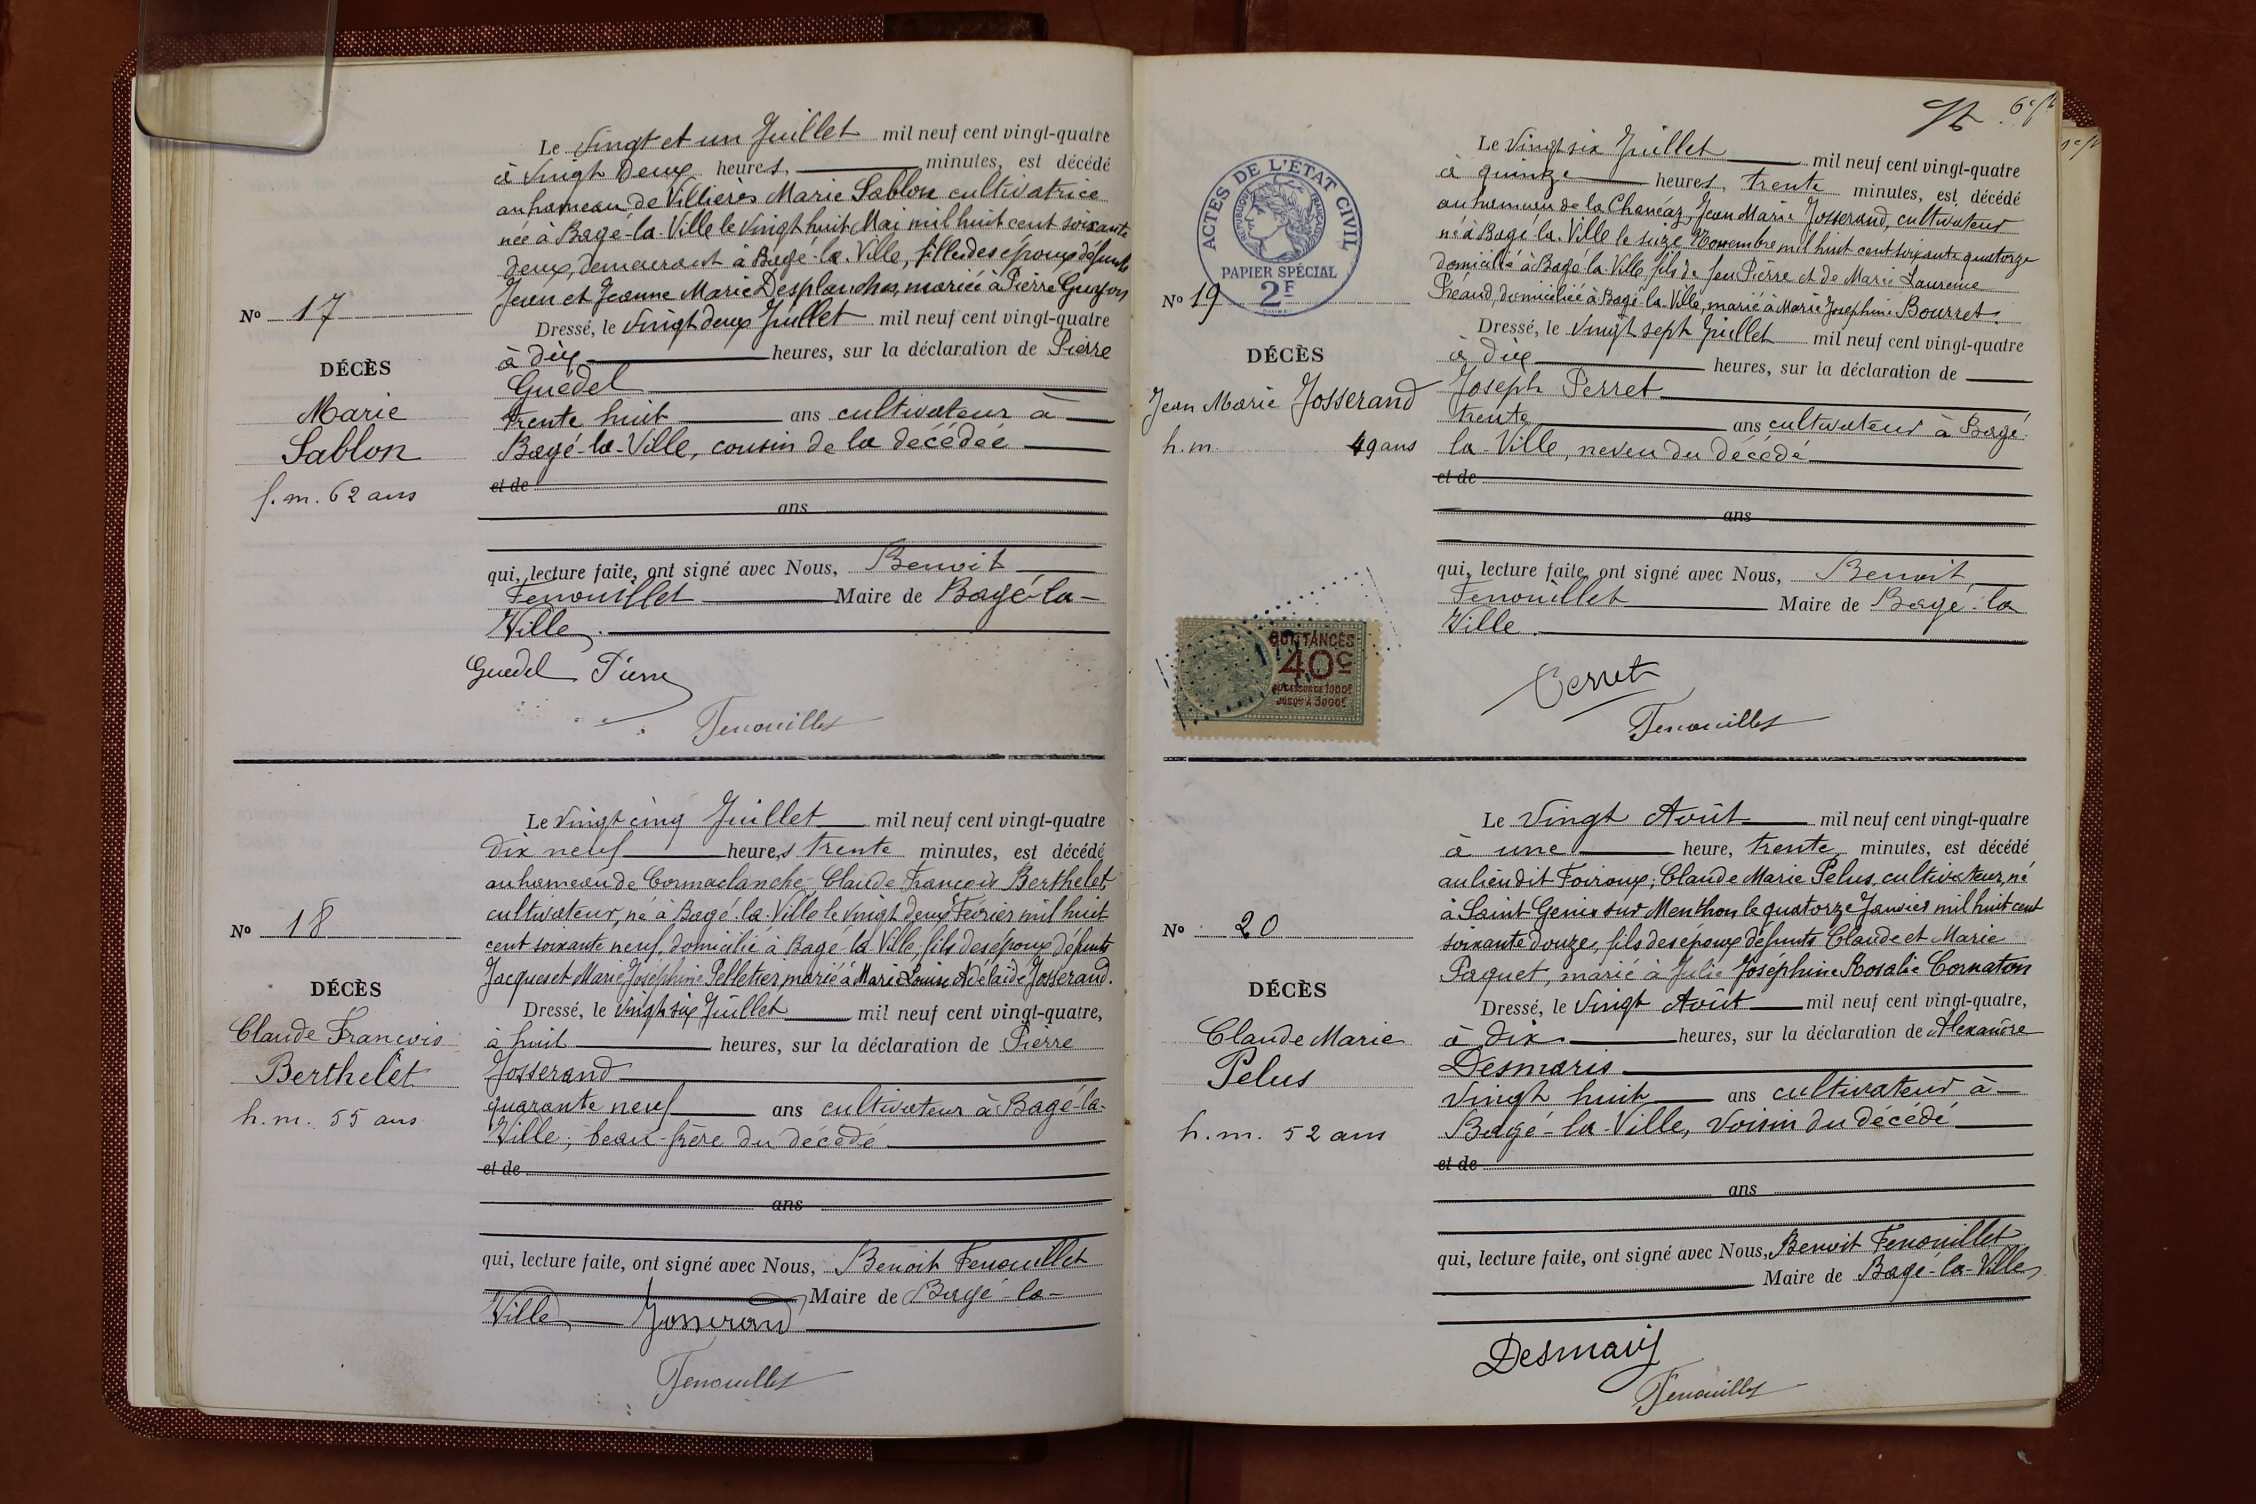 Le Vingt et un Juillet mil neuf cent vingt-quatre
à Vingt Deux heures, minutes, est décédé
au hameau de Villières Marie Sablon cultivatrice
née à Bagé-la-Ville le Vingt huit Mai mil huit cent soixante
deux, demeurant à Bagé-la-Ville, fille des époux défunts
Jean et Jeanne Marie Desplanches, mariée à Pierre Guyon
No 17
Dressé, le Vingt deux Juillet mil neuf cent vingt-quatre
à dix heures, sur la déclaration de Pierre
DÉCÈS
Guédel
Marie
trente huit ans cultivateur à
Sablon
Bagé-la-Ville, cousin de la décédée
f. m. 62 ans
et de
ans
qui, lecture faite, ont signé avec Nous, Benoit
Fenouillet Maire de Bagé-la-
Ville.
Guedel Pierre
Fenouillet
Le Vingt cinq Juillet mil neuf cent vingt-quatre
Dix neuf heures trente minutes, est décédé
au hameau de Cormaclanche, Claude François Berthelet
cultivateur, né à Bagé-la-Ville le Vingt deux Février mil huit
No 18
cent soixante neuf, domicilié à Bagé-la-Ville, fils des époux défunts
Jacques et Marie Joséphine Pelletier, marié à Marie Louise Adélaïde Josserand.
DÉCÈS
Dressé, le Vingt six Juillet mil neuf cent vingt-quatre,
Claude François
à huit heures, sur la déclaration de Pierre
Berthelet
Josserand
h. m. 55 ans
quarante neuf ans cultivateur à Bagé-la-
Ville, beau-frère du décédé
et de
ans
qui, lecture faite, ont signé avec Nous, Benoit Fenouillet
Maire de Bagé-la-
Ville Josserand
Fenouillet
ACTES DE L'ÉTAT CIVIL
RÉPUBLIQUE FRANÇAISE
PAPIER SPÉCIAL
2F
Le Vingt six Juillet mil neuf cent vingt-quatre
à quinze heures, trente minutes, est décédé
au hameau de la Chanéaz, Jean Marie Josserand, cultivateur
né à Bagé-la-Ville le seize Novembre mil huit cent soixante quatorze
domicilié à Bagé-la-Ville fils de feu Pierre et de Marie Laurence
No 19
Préaud, domiciliée à Bagé-la-Ville, marié à Marie Joséphine Bourret.
Dressé, le Vingt sept Juillet mil neuf cent vingt-quatre
DÉCÈS
à dix heures, sur la déclaration de
Jean Marie Josserand
Joseph Perret
trente ans cultivateur à Bagé-
h. m. 49 ans
la-Ville, neveu du décédé
et de
ans
qui, lecture faite, ont signé avec Nous, Benoit
Fenouillet Maire de Bagé-la
Ville.
QUITTANCES
40c
AU DESSUS DE 1000F
JUSQU'À 3000F
Perret
Fenouillet
Le Vingt Août mil neuf cent vingt-quatre
à une heure, trente minutes, est décédé
au lieu dit Foiroux, Claude Marie Pelus, cultivateur, né
à Saint Genis sur Menthon le quatorze Janvier mil huit cent
No 20
soixante douze, fils des époux défunts Claude et Marie
Paquet, marié à Julie Joséphine Rosalie Cornaton
DÉCÈS
Dressé, le Vingt Août mil neuf cent vingt-quatre,
Claude Marie
à dix heures, sur la déclaration de Alexandre
Pelus
Desmaris
Vingt huit ans cultivateur à
h. m. 52 ans
Bagé-la-Ville, Voisin du décédé
et de
ans
qui, lecture faite, ont signé avec Nous, Benoit Fenouillet
Maire de Bagé-la-Ville
Desmaris
Fenouillet